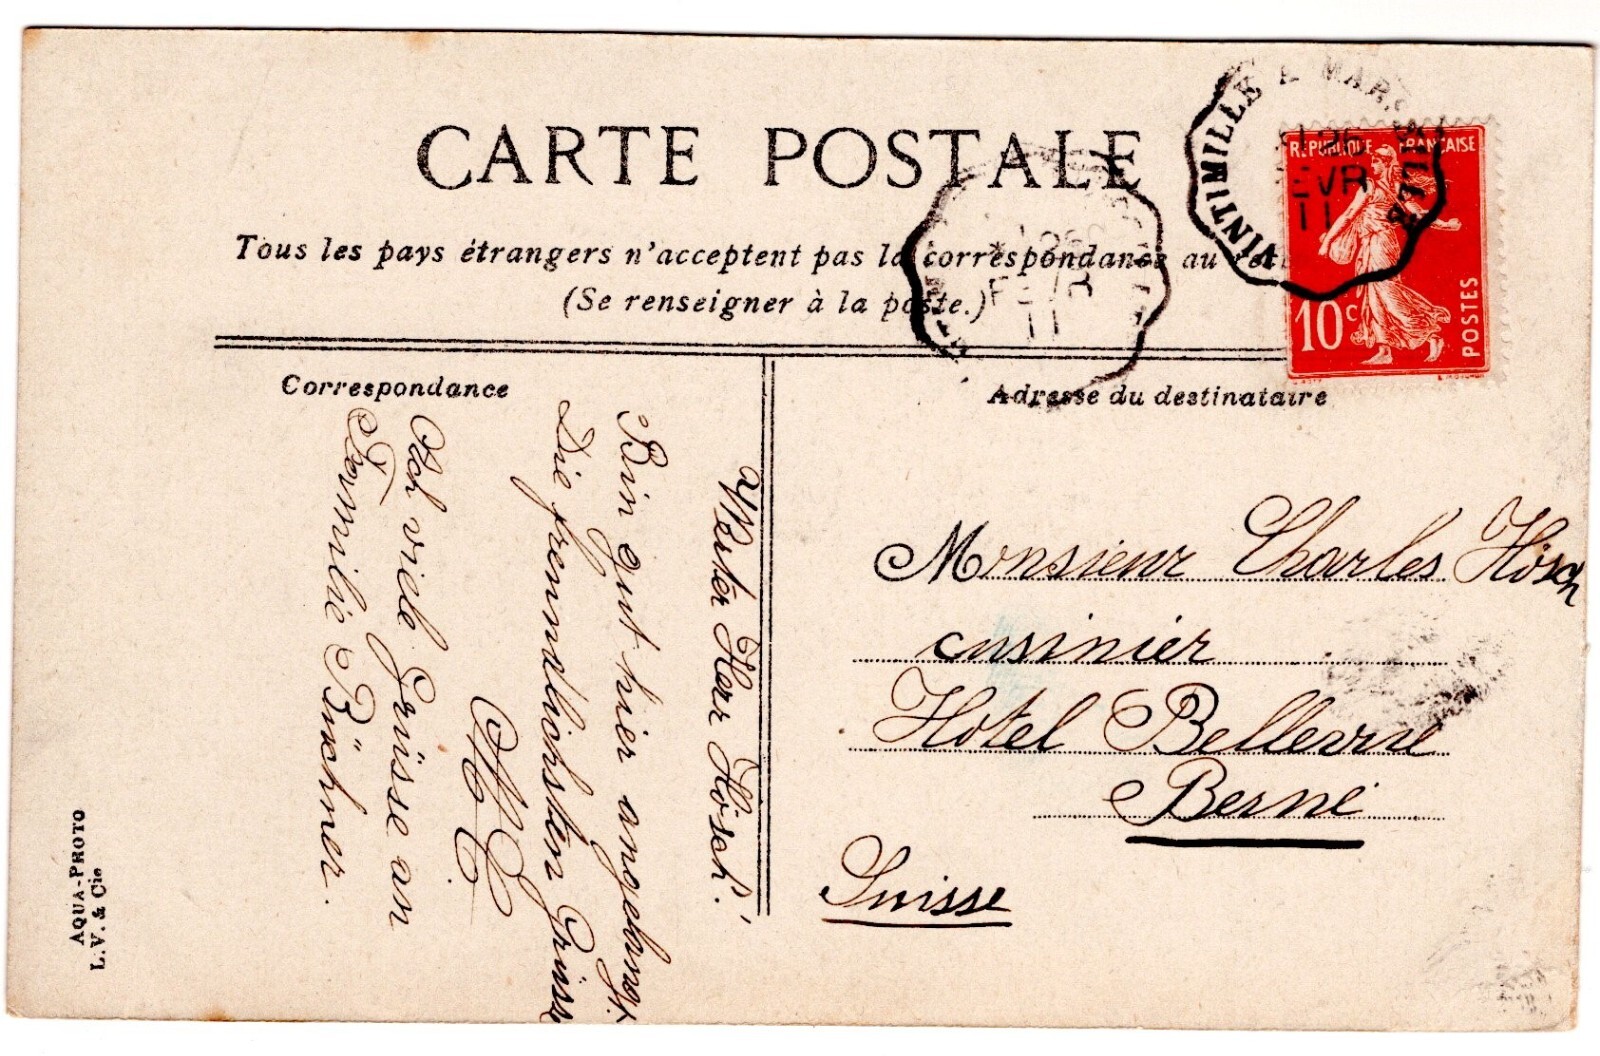 CARTE POSTALE
Tous les pays étrangers n'acceptent pas la correspondance au
(Se renseigner à la poste.)
Correspondance
Werter Herr Hösch!
Bin gut hier angelangt.
Die freundlichsten Grüsse
Och viele Grüsse an
Familie Büchner.
Adresse du destinataire
Monsieur Charles Hösch
cusinier
Hotel Bellevue
Berne
Suisse
VINTIMILLE A MARSEILLE
25
FEVR
11
FEVR
11
REPUBLIQUE FRANÇAISE
10c
POSTES
AQUA-PHOTO
L.V. & Cie